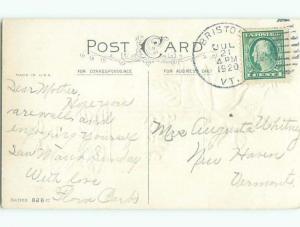 POST CARD
BRISTOL
JUL
21
4 PM
1920
VT.
MADE IN U.S.A.
FOR CORRESPONDENCE
FOR ADDRESS ONLY
Dear Mother,
Hope you
are well and
enjoying yourself
San March Sunday
With love
Flora
Mrs Augusta Whitney
New Haven
Vermont
SERIES 826 C